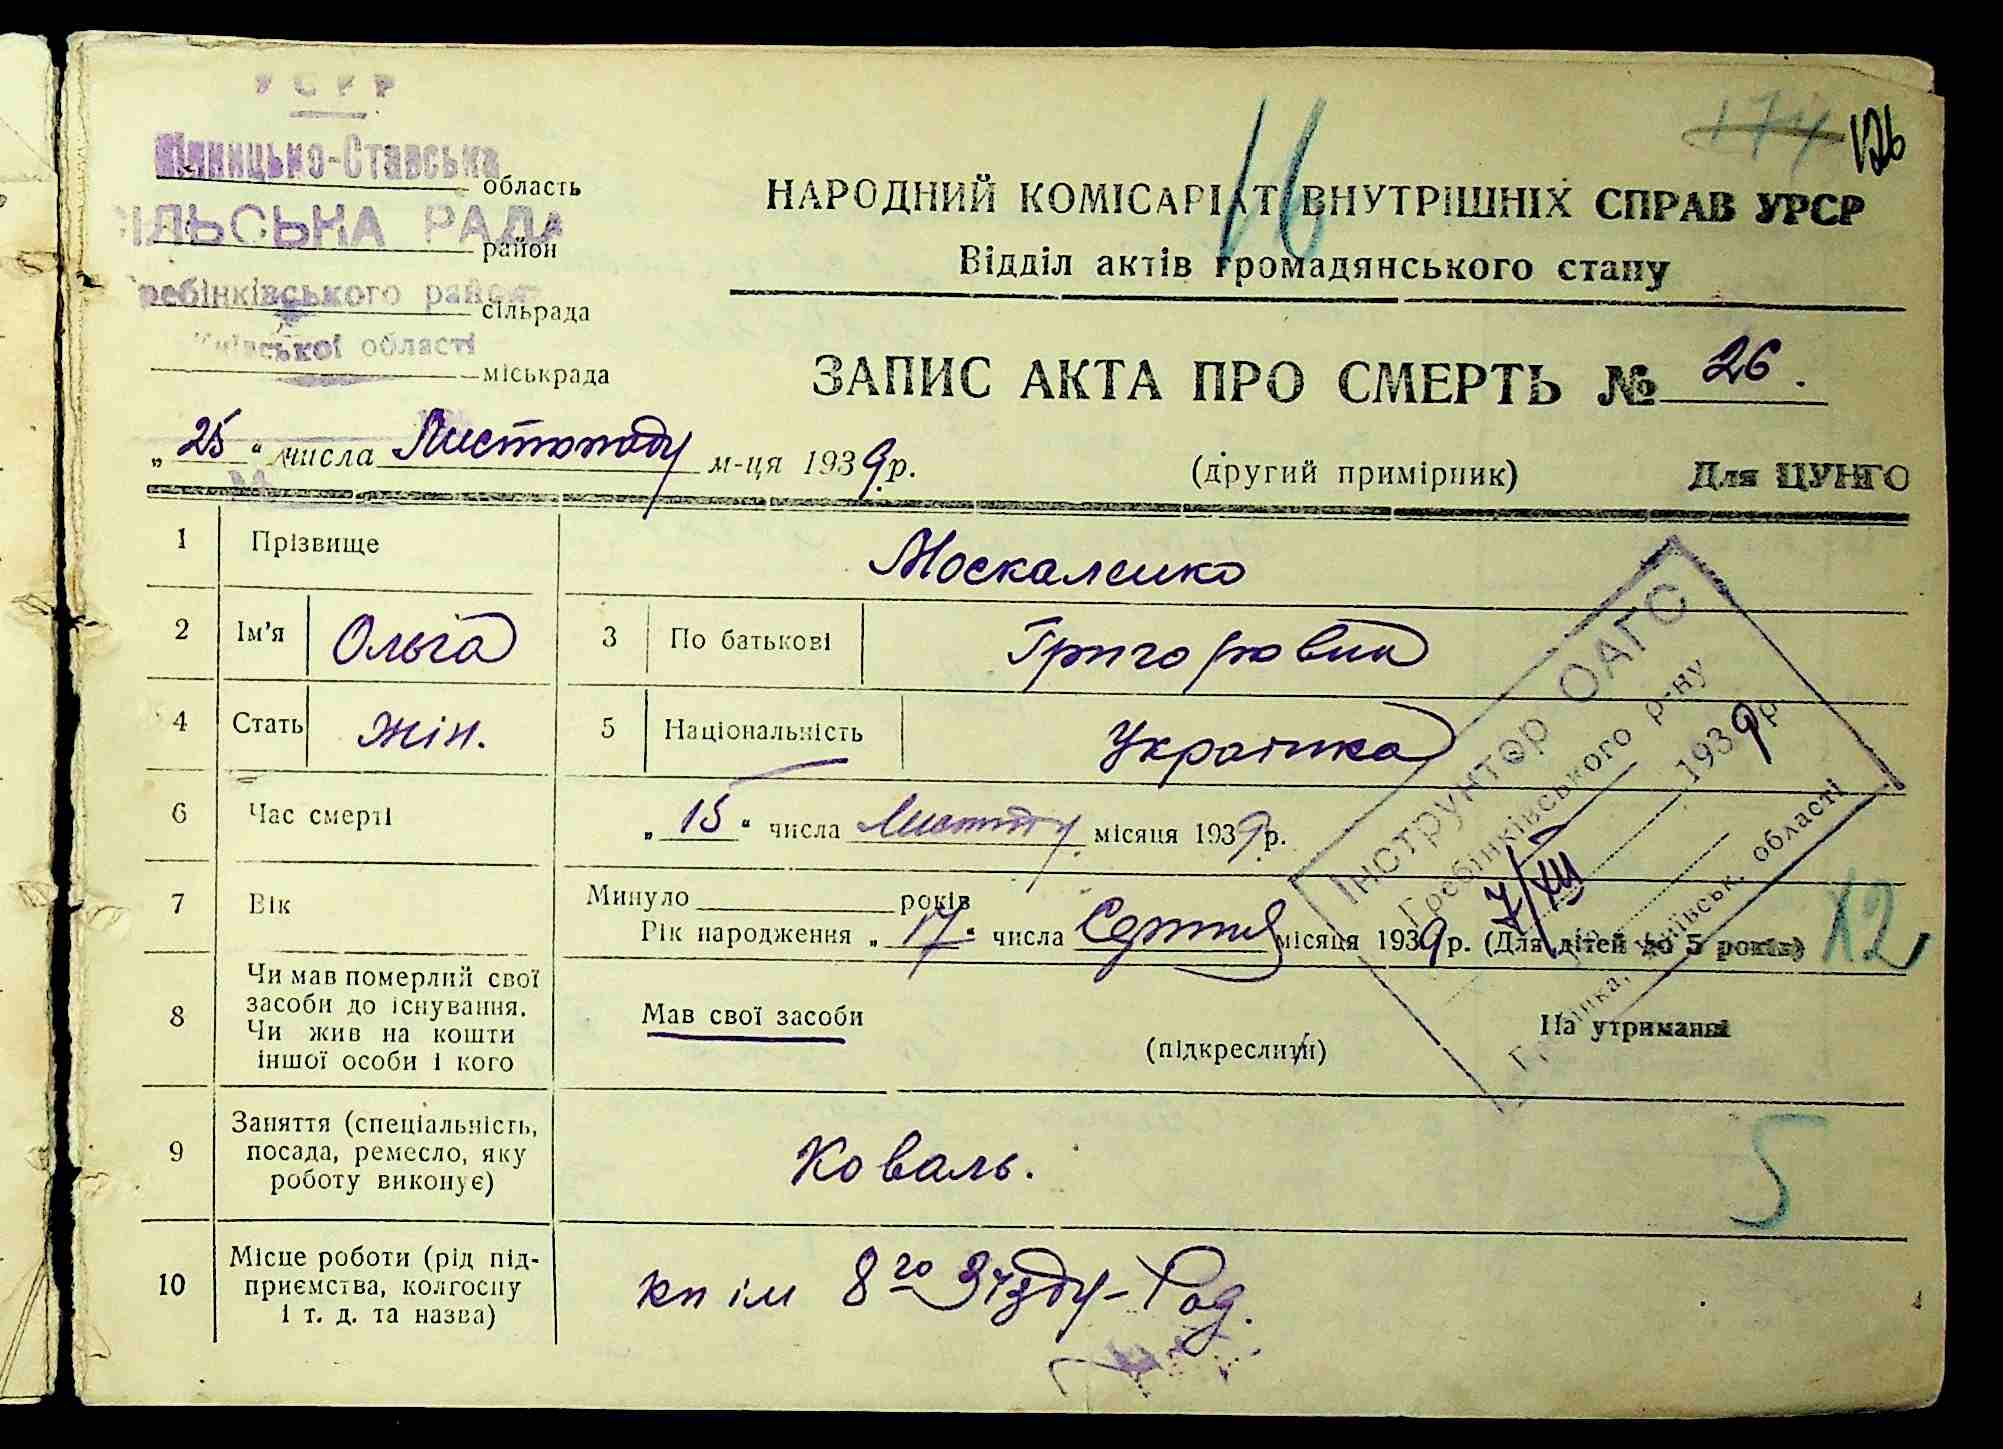 УСРР
Вінницько-Ставська
область
СІЛЬСЬКА РАДА
район
Гребінківського району
сільрада
Київської області
міськрада
16
174
126
НАРОДНИЙ КОМІСАРІАТ ВНУТРІШНІХ СПРАВ УРСР
Відділ актів громадянського стану
ЗАПИС АКТА ПРО СМЕРТЬ № 26.
„25“ числа Листопаду м-ця 1939 р.
(другий примірник) Для ЦУНГО
1 Прізвище Москаленко
2 Ім'я Ольга 3 По батькові Григоровна
4 Стать жін. 5 Національність Українка
6 Час смерті „15“ числа Листопаду місяця 1939 р.
7 Вік Минуло років
Рік народження „17“ числа Серпня місяця 1939 р. (Для дітей до 5 років)
Х2
8 Чи мав померлий свої засоби до існування. Чи жив на кошти іншої особи і кого
Мав свої засоби (підкреслити) На утриманні
9 Заняття (спеціальність, посада, ремесло, яку роботу виконує) Коваль.
5
10 Місце роботи (рід підприємства, колгоспу і т. д. та назва) кп ім 8го Зїзду-Рад.
Інструктор ОАГС
Гребінківського р-ну
7/XII 1939 р.
Гребінка, Київськ. області